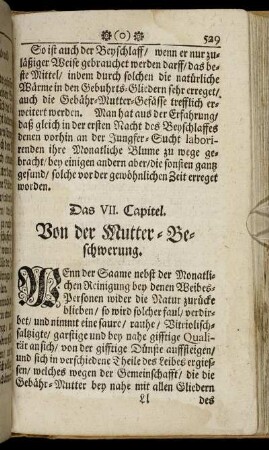 (o) 529
So ist auch der Beyschlaff/ wenn er nur zu-
läßiger Weise gebrauchet werden darff/ das be-
ste Mittel/ indem durch solchen die natürliche
Wärme in den Gebuhrts-Gliedern sehr erreget/
auch die Gebähr-Mutter-Gefässe trefflich er-
weitert werden. Man hat aus der Erfahrung/
daß gleich in der ersten Nacht des Beyschlaffes
denen vorhin an der Jungfer-Sucht labori-
renden ihre Monatliche Blume zu wege ge-
bracht/ bey einigen andern aber/ die sonsten gantz
gesund/ solche vor der gewöhnlichen Zeit erreget
worden.
Das VII. Capitel.
Von der Mutter-Be-
schwerung.
WEnn der Saame nebst der Monatli-
chen Reinigung bey denen Weibes-
Personen wider die Natur zurücke
blieben/ so wird solcher faul/ verdir-
bet/ und nimmt eine saure/ rauhe/ Vitriolisch-
saltzigte/ garstige und bey nahe gifftige Quali-
tät an sich/ von der gifftige Dünste auffsteigen/
und sich in verschiedene Theile des Leibes ergies-
sen/ welches wegen der Gemeinschafft/ die die
Gebähr-Mutter bey nahe mit allen Gliedern
Ll des